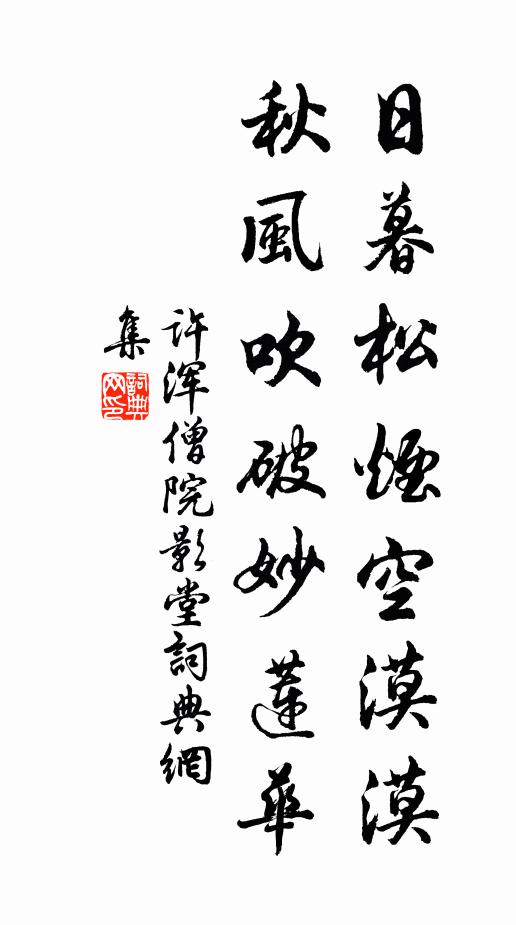 日暮松煙空漠漠
秋風吹破妙蓮華
许渾僧院影堂詞典網
集
詞典网印